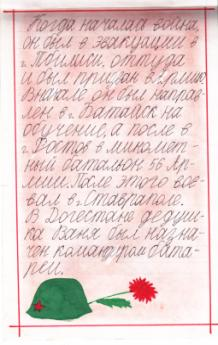 Когда началась война,
он был в эвакуации в
г. Тбилиси, оттуда
и был призван в Армию.
Вначале он был направ-
лен в г. Батайск на
обучение, а после в
г. Ростов в миномёт-
ный батальон 56 Ар-
мии. После этого вое-
вал в г. Ставрополе.
В Дагестане дедуш-
ка Ваня был назна-
чен командиром бата-
реи.